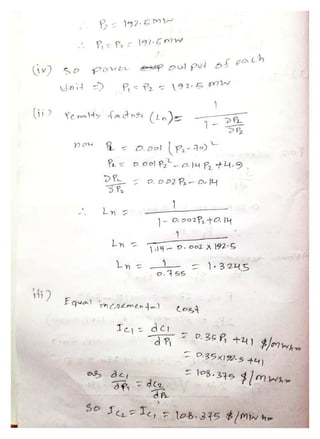 ∴ P₂ = 192.5 MW
∴ P₁ = P₂ = 192.5 MW
(iv) so power output of each
Unit ⇒ P₁ = P₂ = 192.5 MW
(ii) Penalty factor (Ln) = 1 / (1 - ∂PL/∂P2)
now PL = 0.001 (P₂-70)²
PL = 0.001 P₂² - 0.14 P₂ + 4.9
∂PL/∂P2 = 0.002 P₂ - 0.14
∴ Ln = 1 / (1 - 0.002P₂ + 0.14)
Ln = 1 / (1.14 - 0.002 X 192.5)
Ln = 1 / 0.755 = 1.3245
iii) Equal incremental cost
Ic₁ = dc₁/dP₁ = 0.35 P₁ + 41 $/MWhr
= 0.35x192.5 + 41
= 108.375 $/MWhr
as dc₁/dP₁ = dc₂/dP₂
So Ic₂ = Ic₁ = 108.375 $/MWhr